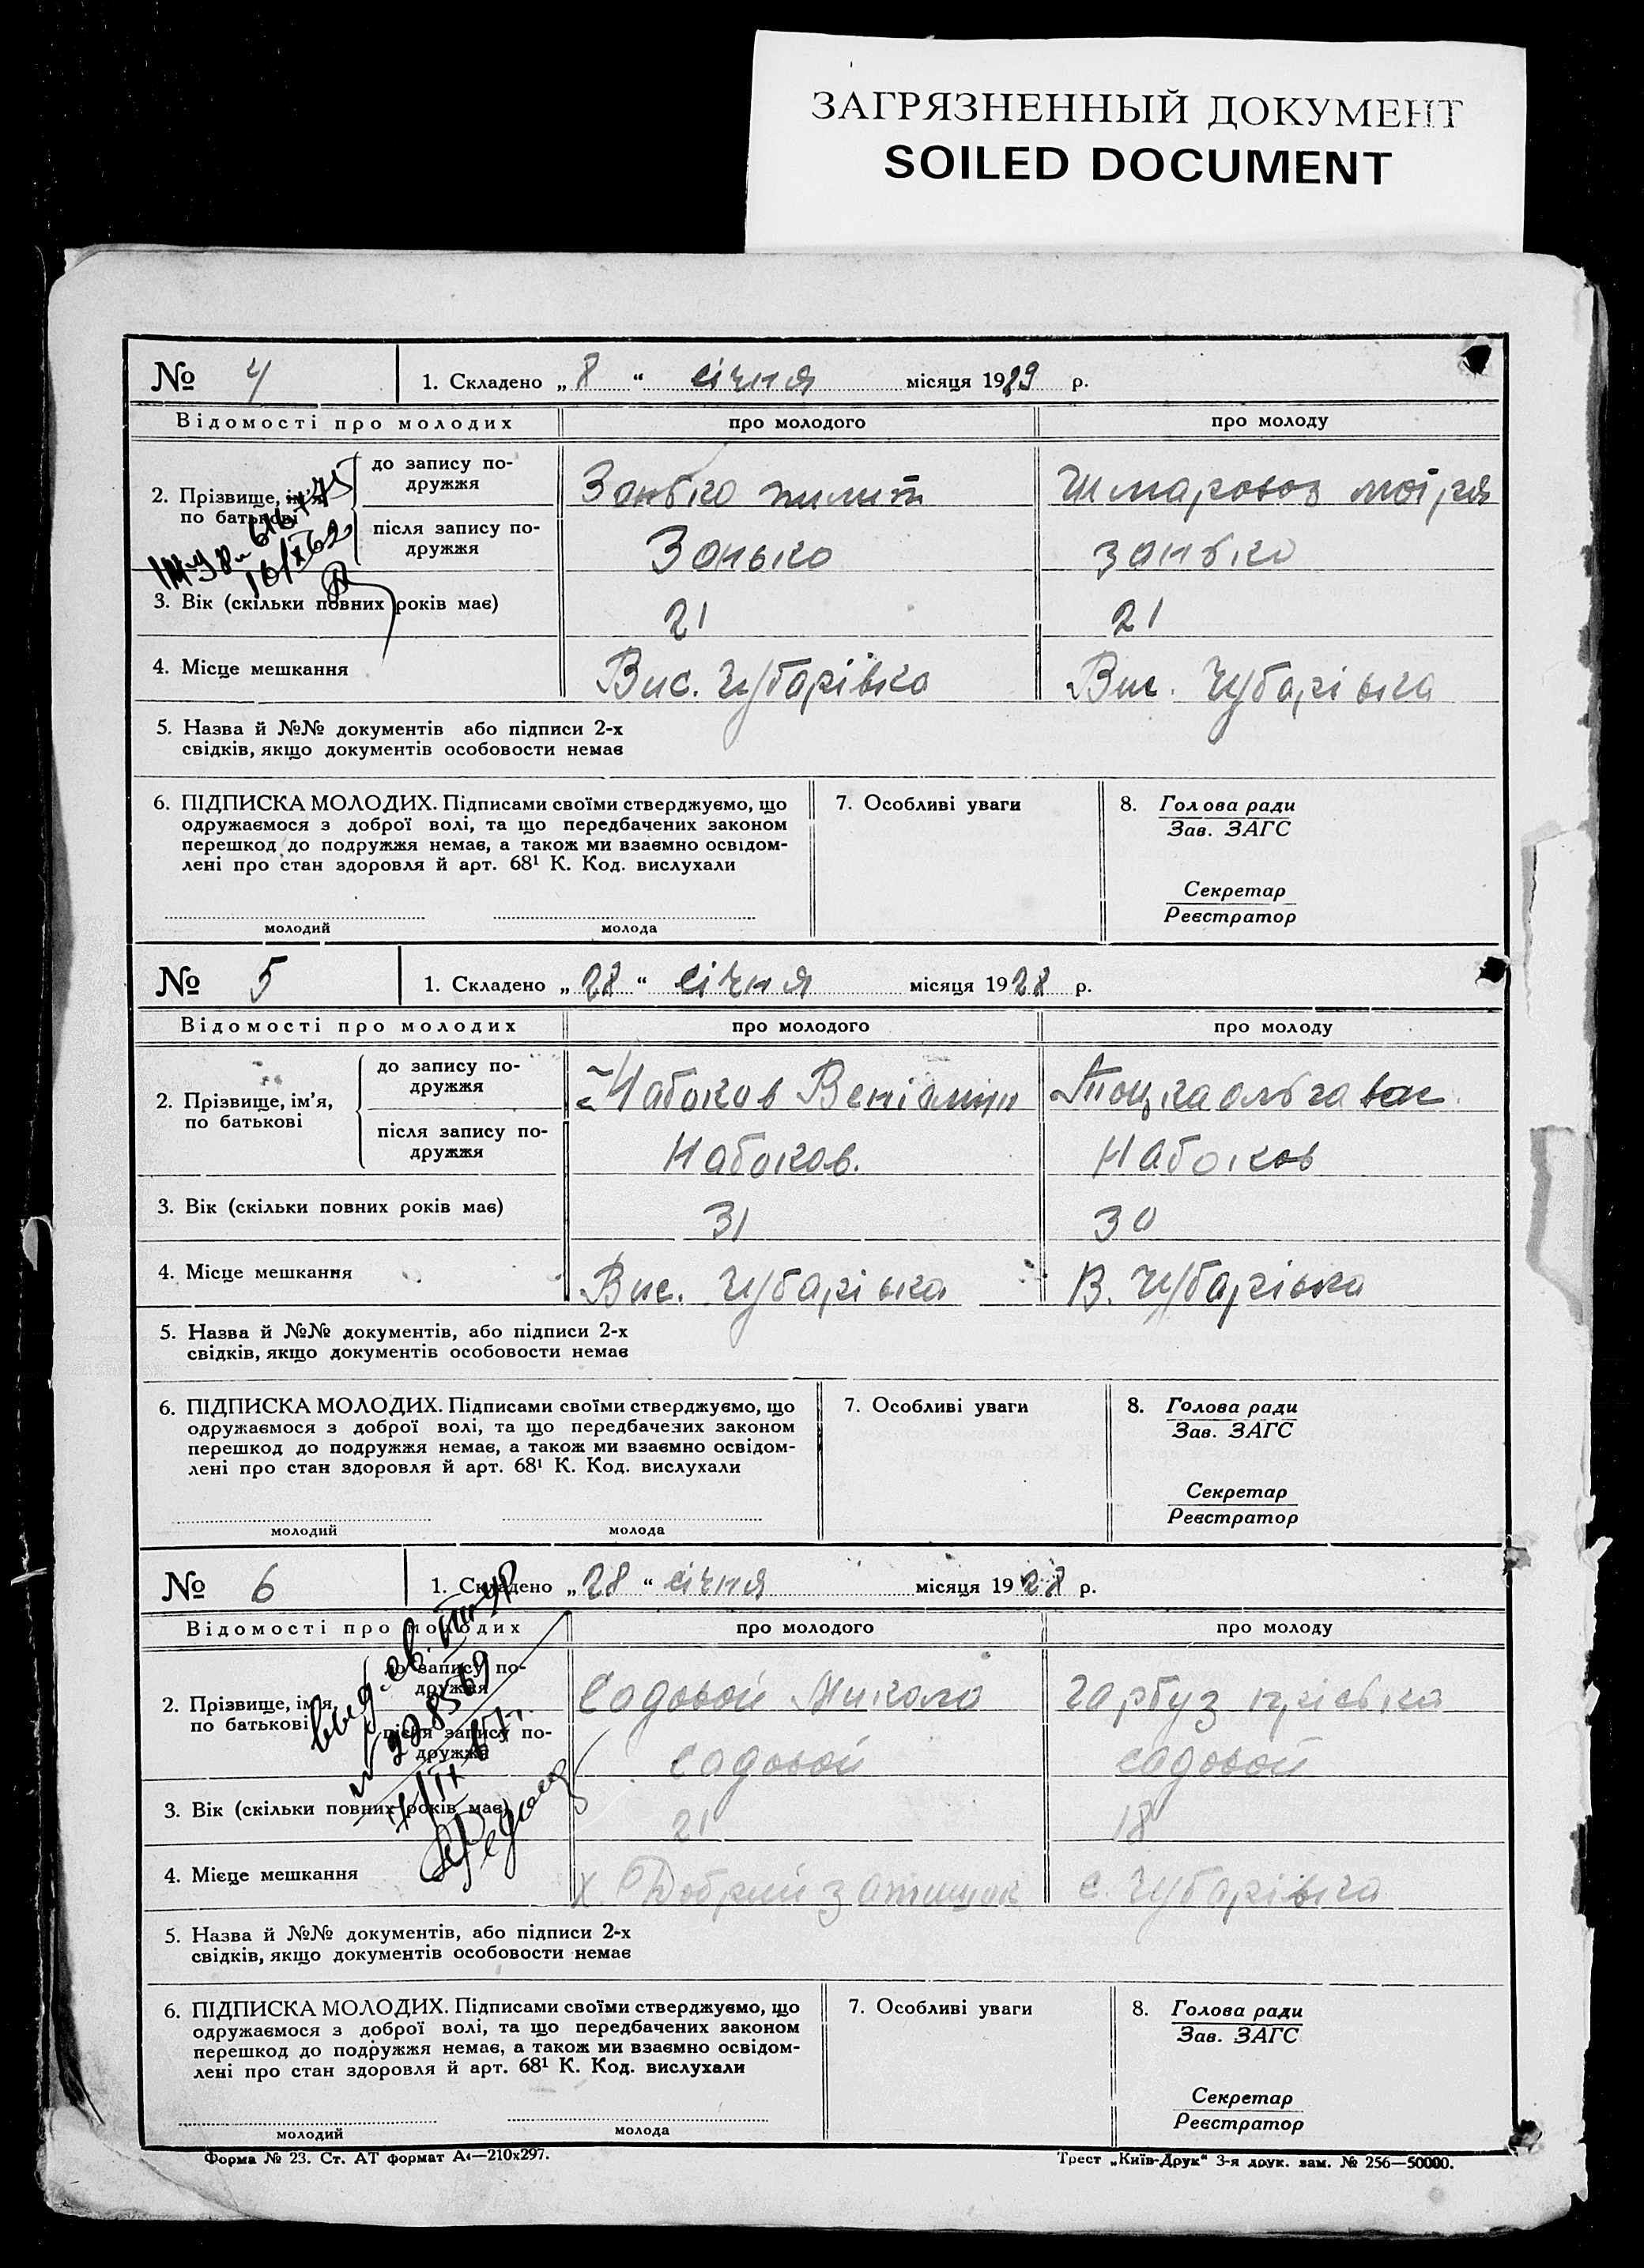 ЗАГРЯЗНЕННЫЙ ДОКУМЕНТ
SOILED DOCUMENT
№ 4
1. Складено „ 8 “ січня місяця 1929 р.
Відомості про молодих
про молодого
про молоду
2. Прізвище, ім'я,
по батькові
до запису по-
дружжя
Занько Пилип
після запису по-
дружжя
Занько
Занько
3. Вік (скільки повних років має)
21
21
4. Місце мешкання
Вис. Чубарівка
Вис. Чубарівка
5. Назва й №№ документів або підписи 2-х
свідків, якщо документів особовости немає
6. ПІДПИСКА МОЛОДИХ. Підписами своїми стверджуємо, що
одружаємося з доброї волі, та що передбачених законом
перешкод до подружжя немає, а також ми взаємно освідом-
лені про стан здоровля й арт. 68¹ К. Код. вислухали
молодий
молода
7. Особливі уваги
8. Голова ради
Зав. ЗАГС
Секретар
Реєстратор
№ 5
1. Складено „ 28 “ січня місяця 1928 р.
Відомості про молодих
про молодого
про молоду
2. Прізвище, ім'я,
по батькові
до запису по-
дружжя
Набоков Веніамин
Ольга Вас
після запису по-
дружжя
Набоков.
Набоков
3. Вік (скільки повних років має)
31
30
4. Місце мешкання
Вис. Чубарівка
В. Чубарівка
5. Назва й №№ документів, або підписи 2-х
свідків, якщо документів особовости немає
6. ПІДПИСКА МОЛОДИХ. Підписами своїми стверджуємо, що
одружаємося з доброї волі, та що передбачених законом
перешкод до подружжя немає, а також ми взаємно освідом-
лені про стан здоровля й арт. 68¹ К. Код. вислухали
молодий
молода
7. Особливі уваги
8. Голова ради
Зав. ЗАГС
Секретар
Реєстратор
№ 6
1. Складено „ 28 “ січня місяця 1928 р.
Відомості про молодих
про молодого
про молоду
2. Прізвище, ім'я,
по батькові
до запису по-
дружжя
Садовой Микола
Гарбуз Пріська
після запису по-
дружжя
Садовой
Садовой
3. Вік (скільки повних років має)
21
18
4. Місце мешкання
х. Добрий затишок
с. Чубарівка
5. Назва й №№ документів, або підписи 2-х
свідків, якщо документів особовости немає
6. ПІДПИСКА МОЛОДИХ. Підписами своїми стверджуємо, що
одружаємося з доброї волі, та що передбачених законом
перешкод до подружжя немає, а також ми взаємно освідом-
лені про стан здоровля й арт. 68¹ К. Код. вислухали
молодий
молода
7. Особливі уваги
8. Голова ради
Зав. ЗАГС
Секретар
Реєстратор
Форма № 23. Ст. АТ формат А4—210х297.
Трест „Київ-Друк“ 3-я друк. зам. № 256—50000.